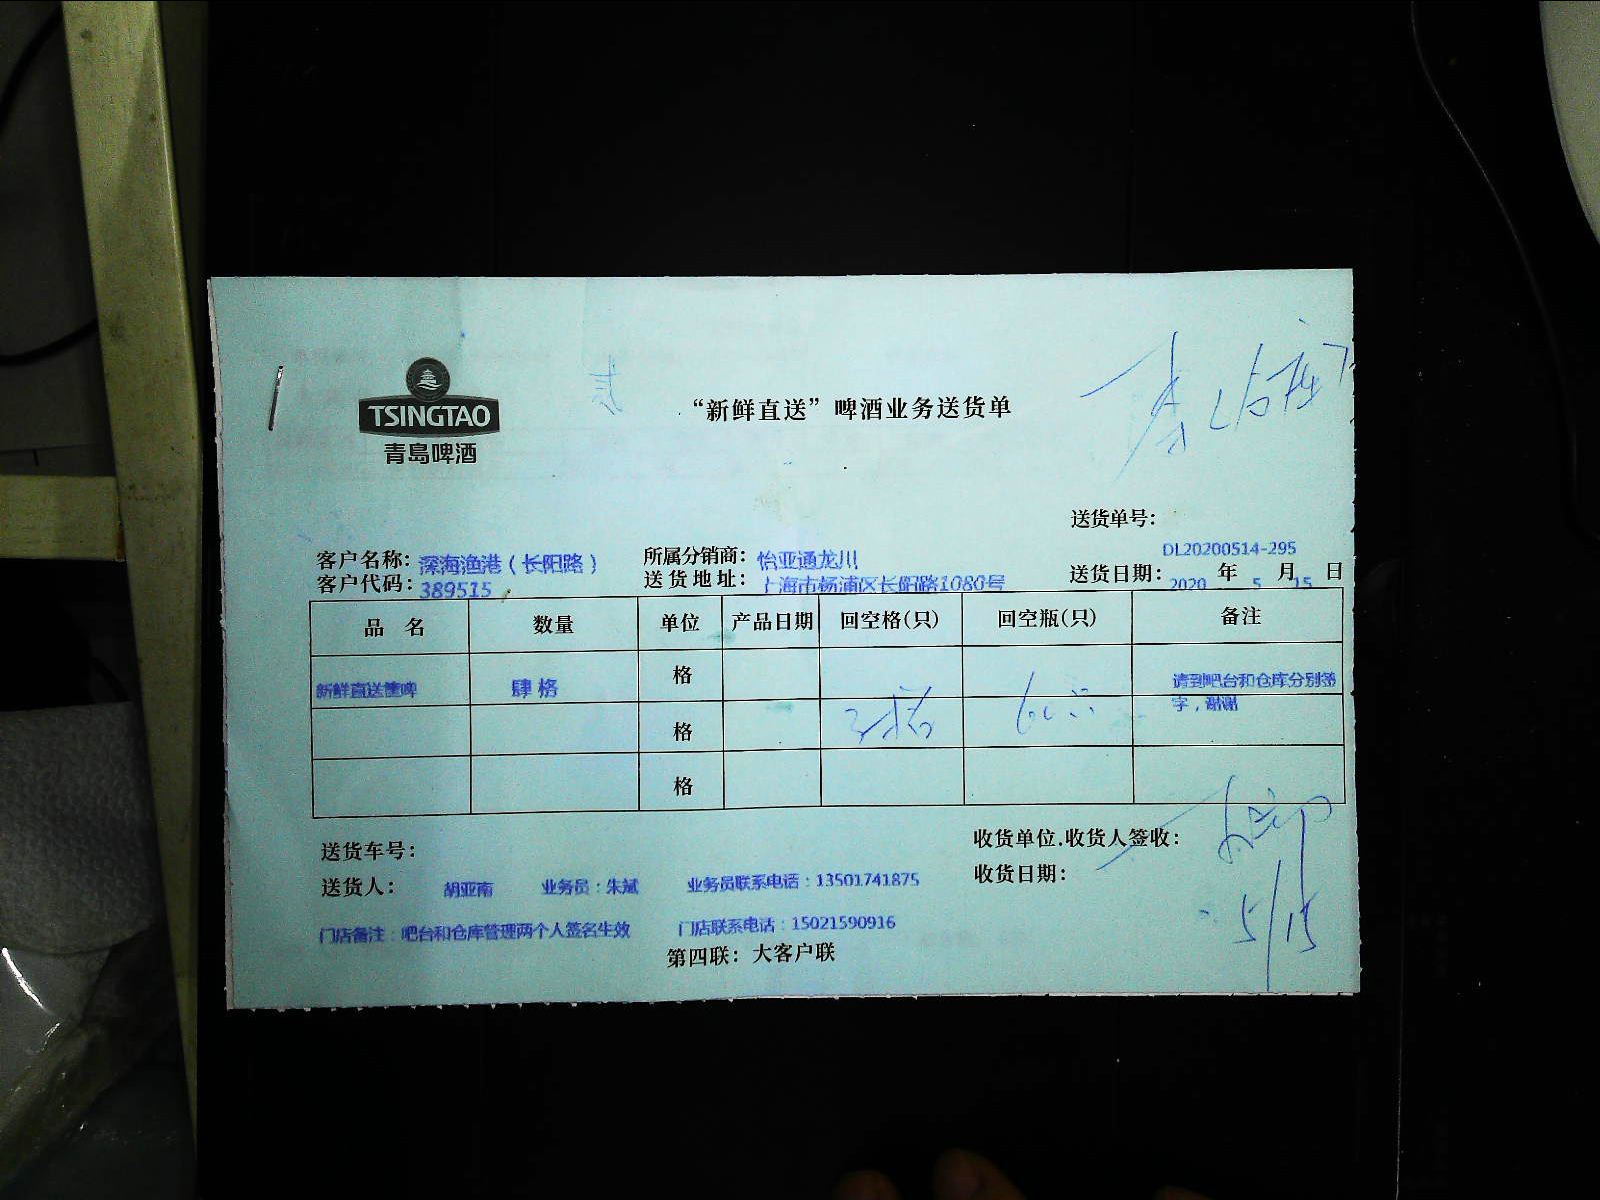 TSINGTAO
青島啤酒
“新鲜直送”啤酒业务送货单
送货单号：
DL20200514-295
客户名称：深海渔港（长阳路） 所属分销商：怡亚通龙川
客户代码：389515 送货地址：上海市杨浦区长阳路1080号 送货日期：2020 年 5 月 15 日
品 名 数量 单位 产品日期 回空格(只) 回空瓶(只) 备注
新鲜直送 肆格 格 请到吧台和仓库分别签
字，谢谢
格 60只
格
送货车号： 收货单位.收货人签收：
送货人： 胡亚南 业务员：朱斌 业务员联系电话：13501741875 收货日期：
5/15
门店备注：吧台和仓库管理两个人签名生效 门店联系电话：15021590916
第四联：大客户联